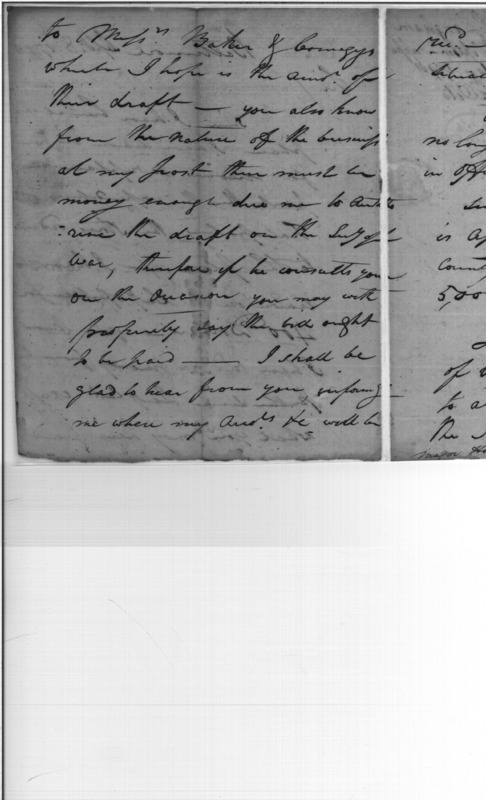 to Messrs Baker & Comegys
which I hope is the amot of
their draft — you also know
from the nature of the business
at my post there must be
money enough due me to autho
:rise the draft on the Secy of
War, therefore if he consults you
on the occasion you may with
propriety say the bill ought
to be paid — I shall be
glad to hear from you informg
me where my Accts &c will be
recd
no long
in Off
is a
count
5,00
of
to a
the